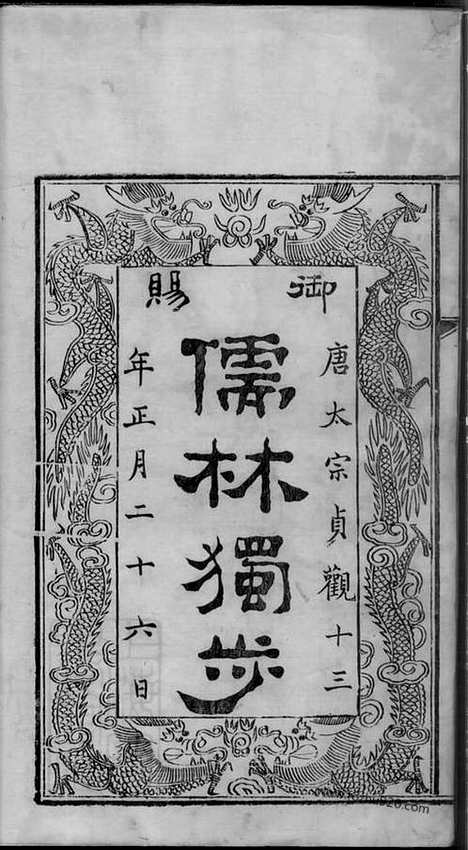 御賜
唐太宗貞觀十三
儒林獨步
年正月二十六日